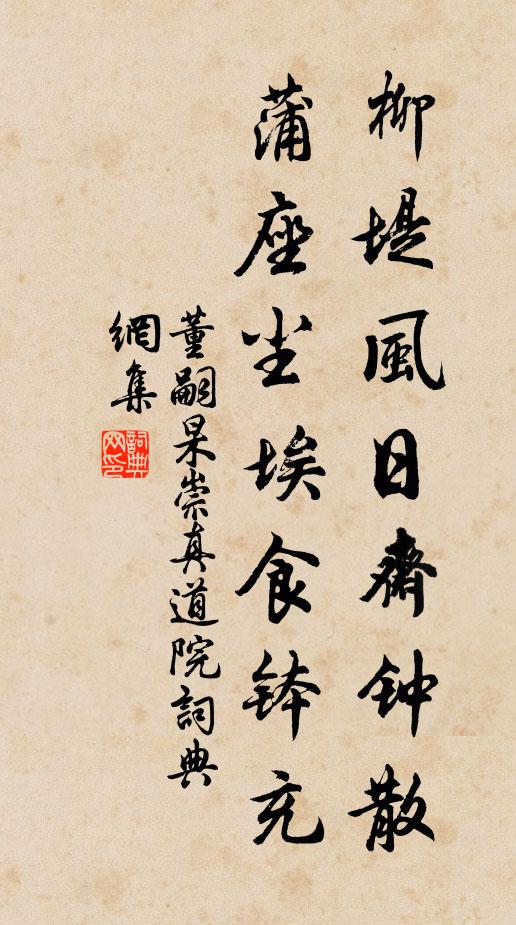 柳堤風日齋钟散
蒲座尘埃食钵充
董嗣杲崇真道院詞典
網集
詞典
网印